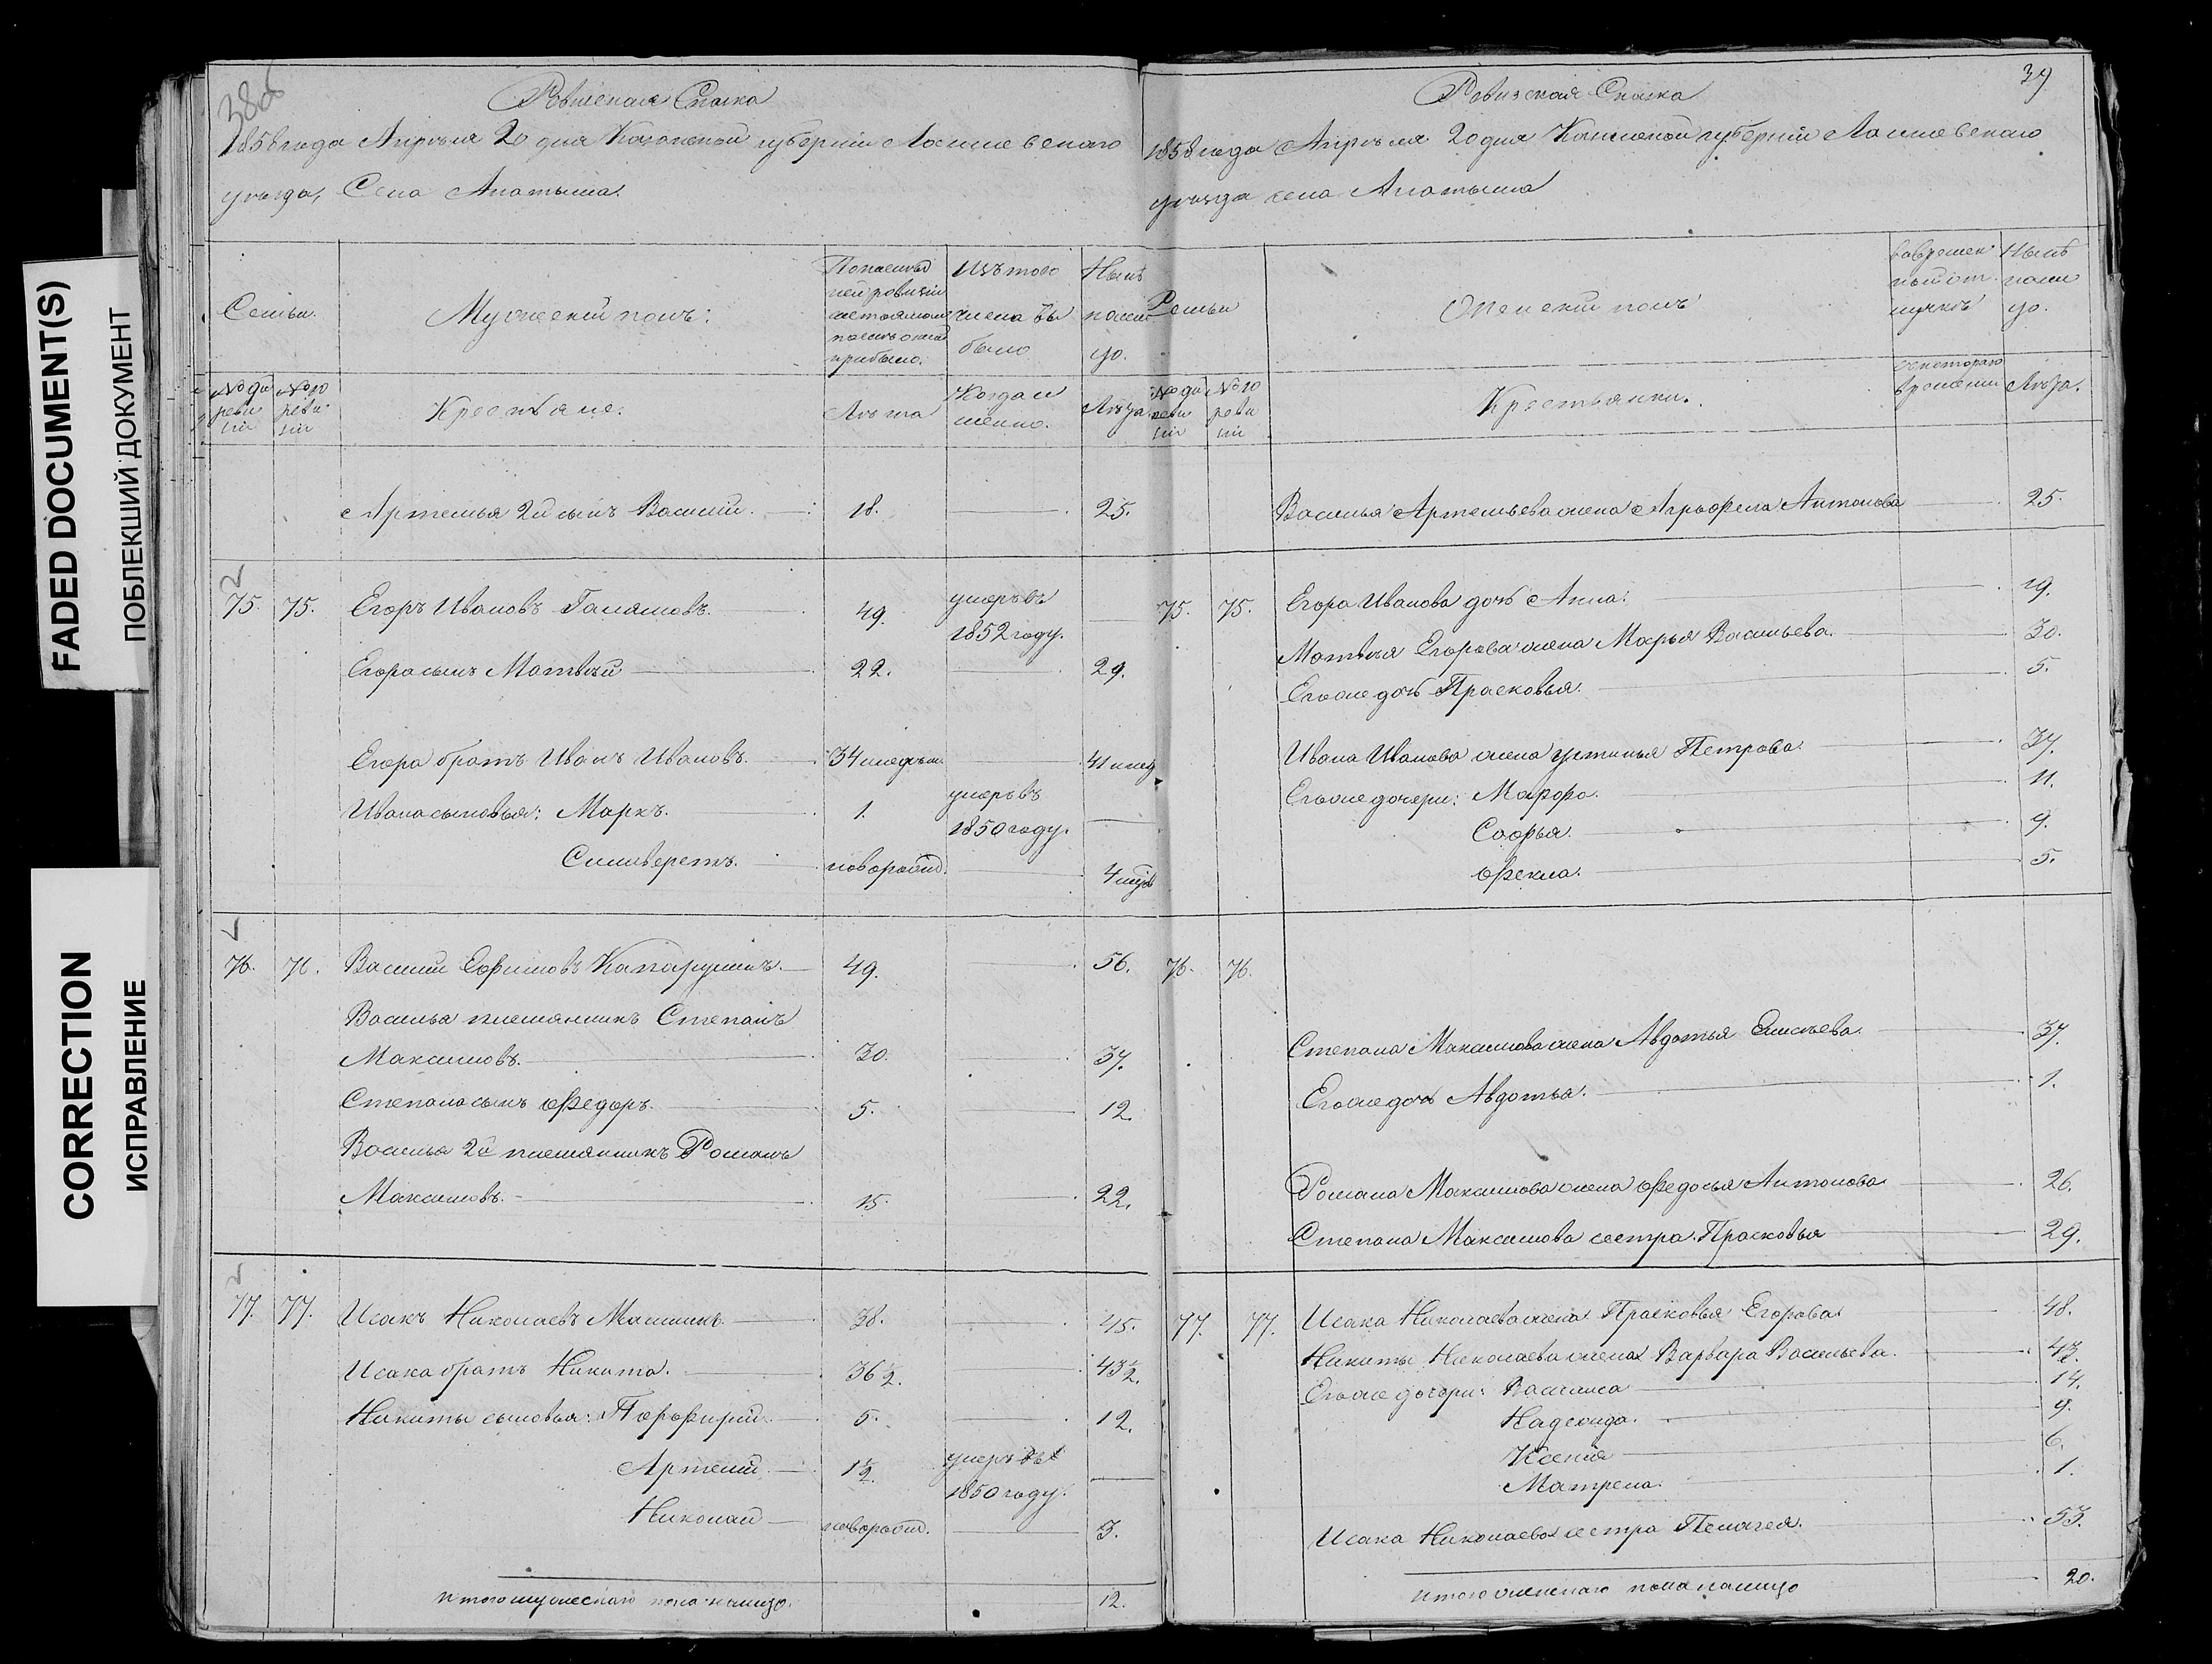 FADED DOCUMENT(S)
ПОБЛЕКШИЙ ДОКУМЕНТ
CORRECTION
ИСПРАВЛЕНИЕ
38об
Ревизская Сказка
1858 года Апрѣля 20 дня Казанской губернiи Лаишевскаго
уѣзда, Села Апатыша.
Семьи.
Мужескiй полъ:
По послѣд
ней ревизiи
состояло и
послѣ оной
прибыло.
Изъ того
числа вы
было
Нынѣ
на ли
цо.
№ до
реви
зiи
№ по
реви
зiи
Крестьяне:
Лѣта
Когда и
менно.
Лѣта
Артемья 2й сынъ Василiй. 18. 25.
75. 75. Егоръ Ивановъ Галямовъ. 49. умеръ въ
1852 году.
Егора сынъ Матвѣй 22. 29.
Егора братъ Иванъ Ивановъ. 34 41
Ивана сыновья: Маркъ. 1. умеръ въ
1850 году.
Силиверстъ. новорожд. 4
76. 76. Василiй Ефимовъ 49. 56.
Василья племянникъ Степанъ
Максимовъ. 30. 37.
Степана сынъ Федоръ. 5. 12.
Василья 2й племянникъ Романъ
Максимовъ. 15. 22.
77. 77. Исакъ Николаевъ Машинъ. 38. 45.
Исака братъ Никита. 36½. 43½.
Никиты сыновья: Порфирiй. 5. 12.
Артемiй. 1½. умеръ въ
1850 году.
Николай новорожд. 3.
Итого мужескаго пола налицо. 12.
39
Ревизская Сказка
1858 года Апрѣля 20 дня Казанской губернiи Лаишевскаго
уѣзда села Апатыша
Семьи
Женскiй полъ
Во времен
ной от
лучкѣ
Нынѣ
нали
цо.
№ до
реви
зiи
№ по
реви
зiи
Крестьянки.
Съ котораго
времени
Лѣта.
Василья Артемьева жена Агрофена Антонова 25.
75. 75. Егора Иванова дочь Анна. 19.
Матвѣя Егорова жена Марья Васильева. 30.
Его же дочь Прасковья. 5.
Ивана Иванова жена Устинья Петрова. 37.
Его же дочери: Марфа. 11.
Софья. 9.
Фекла. 5.
76. 76.
Степана Максимова жена Авдотья Елисѣева. 37.
Его же дочь Авдотья. 1.
Романа Максимова жена Федосья Антонова 26.
Степана Максимова сестра Прасковья 29.
77. 77. Исака Николаева жена Прасковья Егорова. 48.
Никиты Николаева жена Варвара Васильева.
Его же дочери: Василиса 14.
Надежда. 9.
Ксенiя 6.
Матрена. 1.
Исака Николаева сестра Пелагея. 53.
Итого женскаго пола налицо 20.